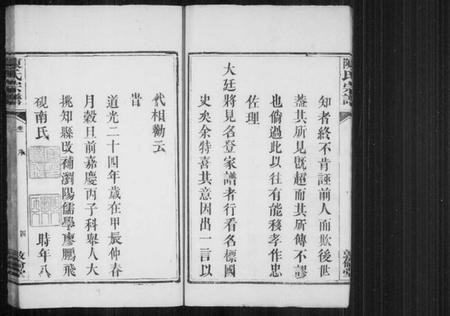 陳氏宗譜
知者終不肯誣前人而欺後世
蓋其所見既超而其所傳不謬
也倘過此以往有能移孝作忠
佐理
大廷將見名登家譜者行看名標國
史矣余特喜其意因出一言以
代相勸云
旹
道光二十四年歲在甲辰仲春
月穀旦前嘉慶丙子科舉人大
挑知縣改補瀏陽儒學廖鵬飛
硯南氏
時年八
陳氏宗譜
四